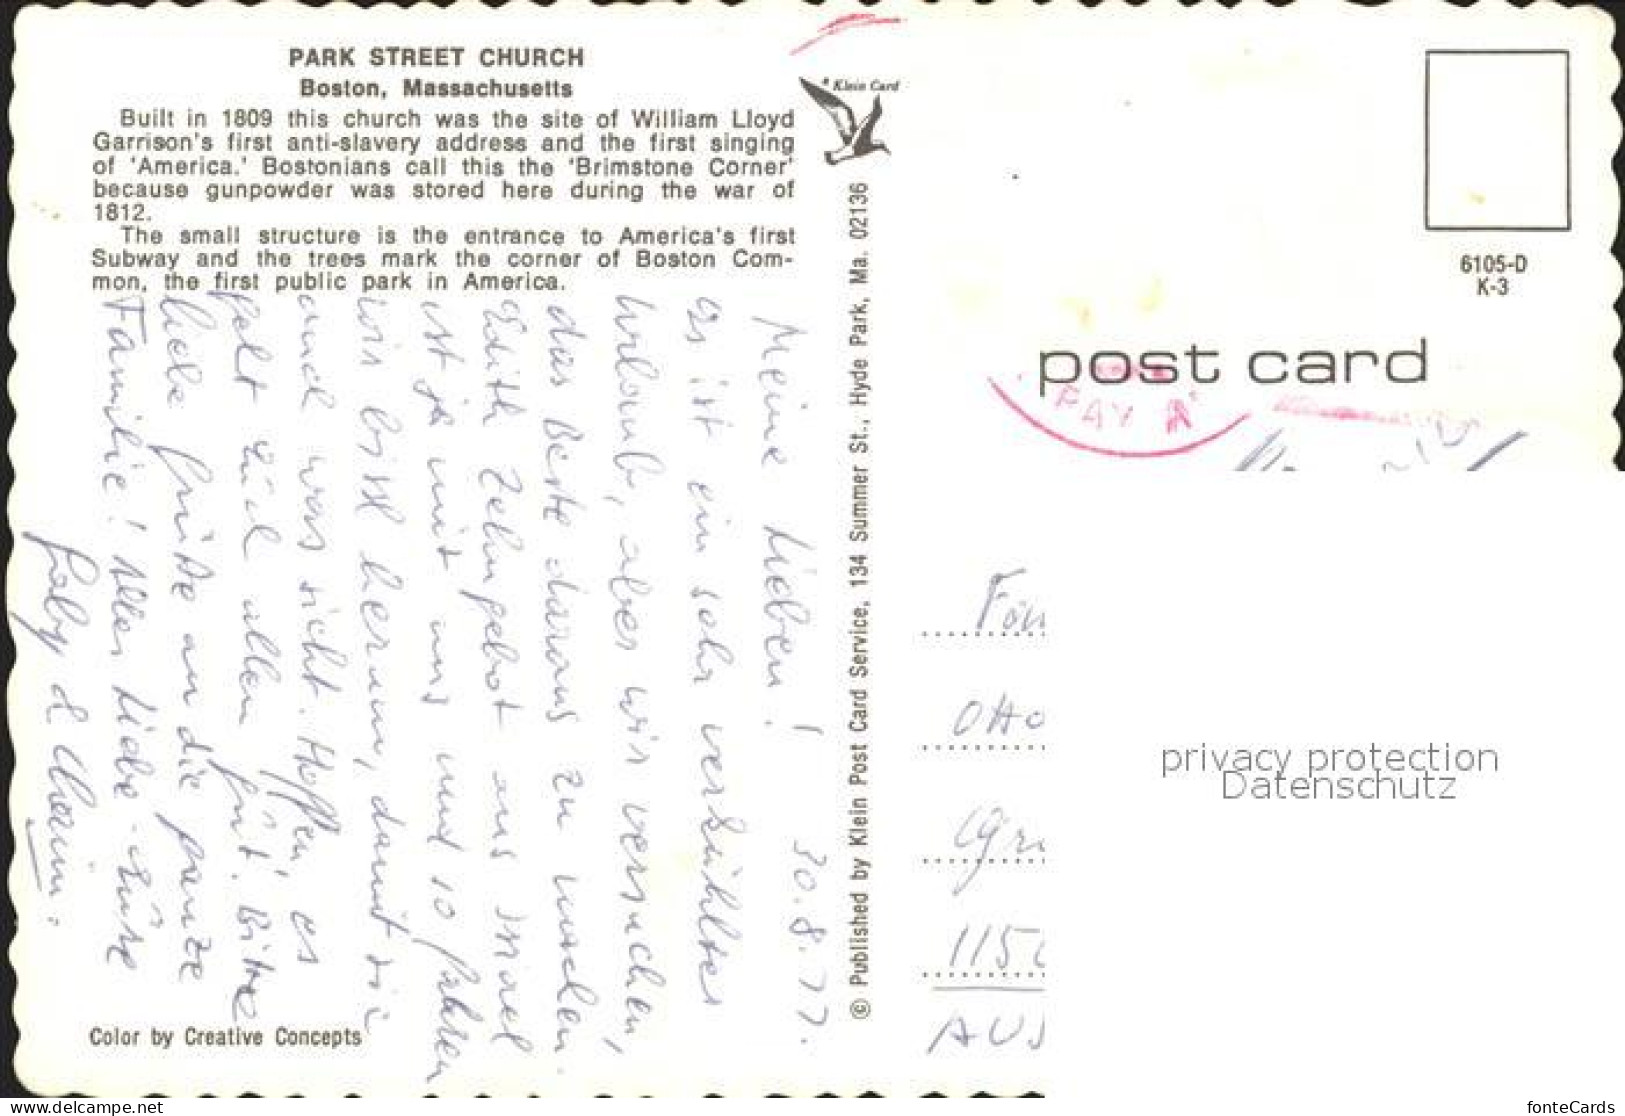 PARK STREET CHURCH
Boston, Massachusetts
Built in 1809 this church was the site of William Lloyd
Garrison's first anti-slavery address and the first singing
of 'America.' Bostonians call this the 'Brimstone Corner'
because gunpowder was stored here during the war of
1812.
The small structure is the entrance to America's first
Subway and the trees mark the corner of Boston Com-
mon, the first public park in America.
Klein Card
© Published by Klein Post Card Service, 134 Summer St., Hyde Park, Ma. 02136
6105-D
K-3
post card
PAY
30.8.77.
Meine Lieben!
Es ist ein sehr verkühlter
Urlaub, aber wir versuchen,
das Beste daraus zu machen.
Edith Zehngebot aus Israel
ist ja mit uns und so fahren
wir bissl herum, damit sie
auch was sieht. Hoffen, es
geht Euch allen gut. Bitte
liebe Grüße an die ganze
Familie! Alles Liebe
Gaby &
Otto
115
AUS
privacy protection
Datenschutz
Color by Creative Concepts
www.delcampe.net
fonteCards